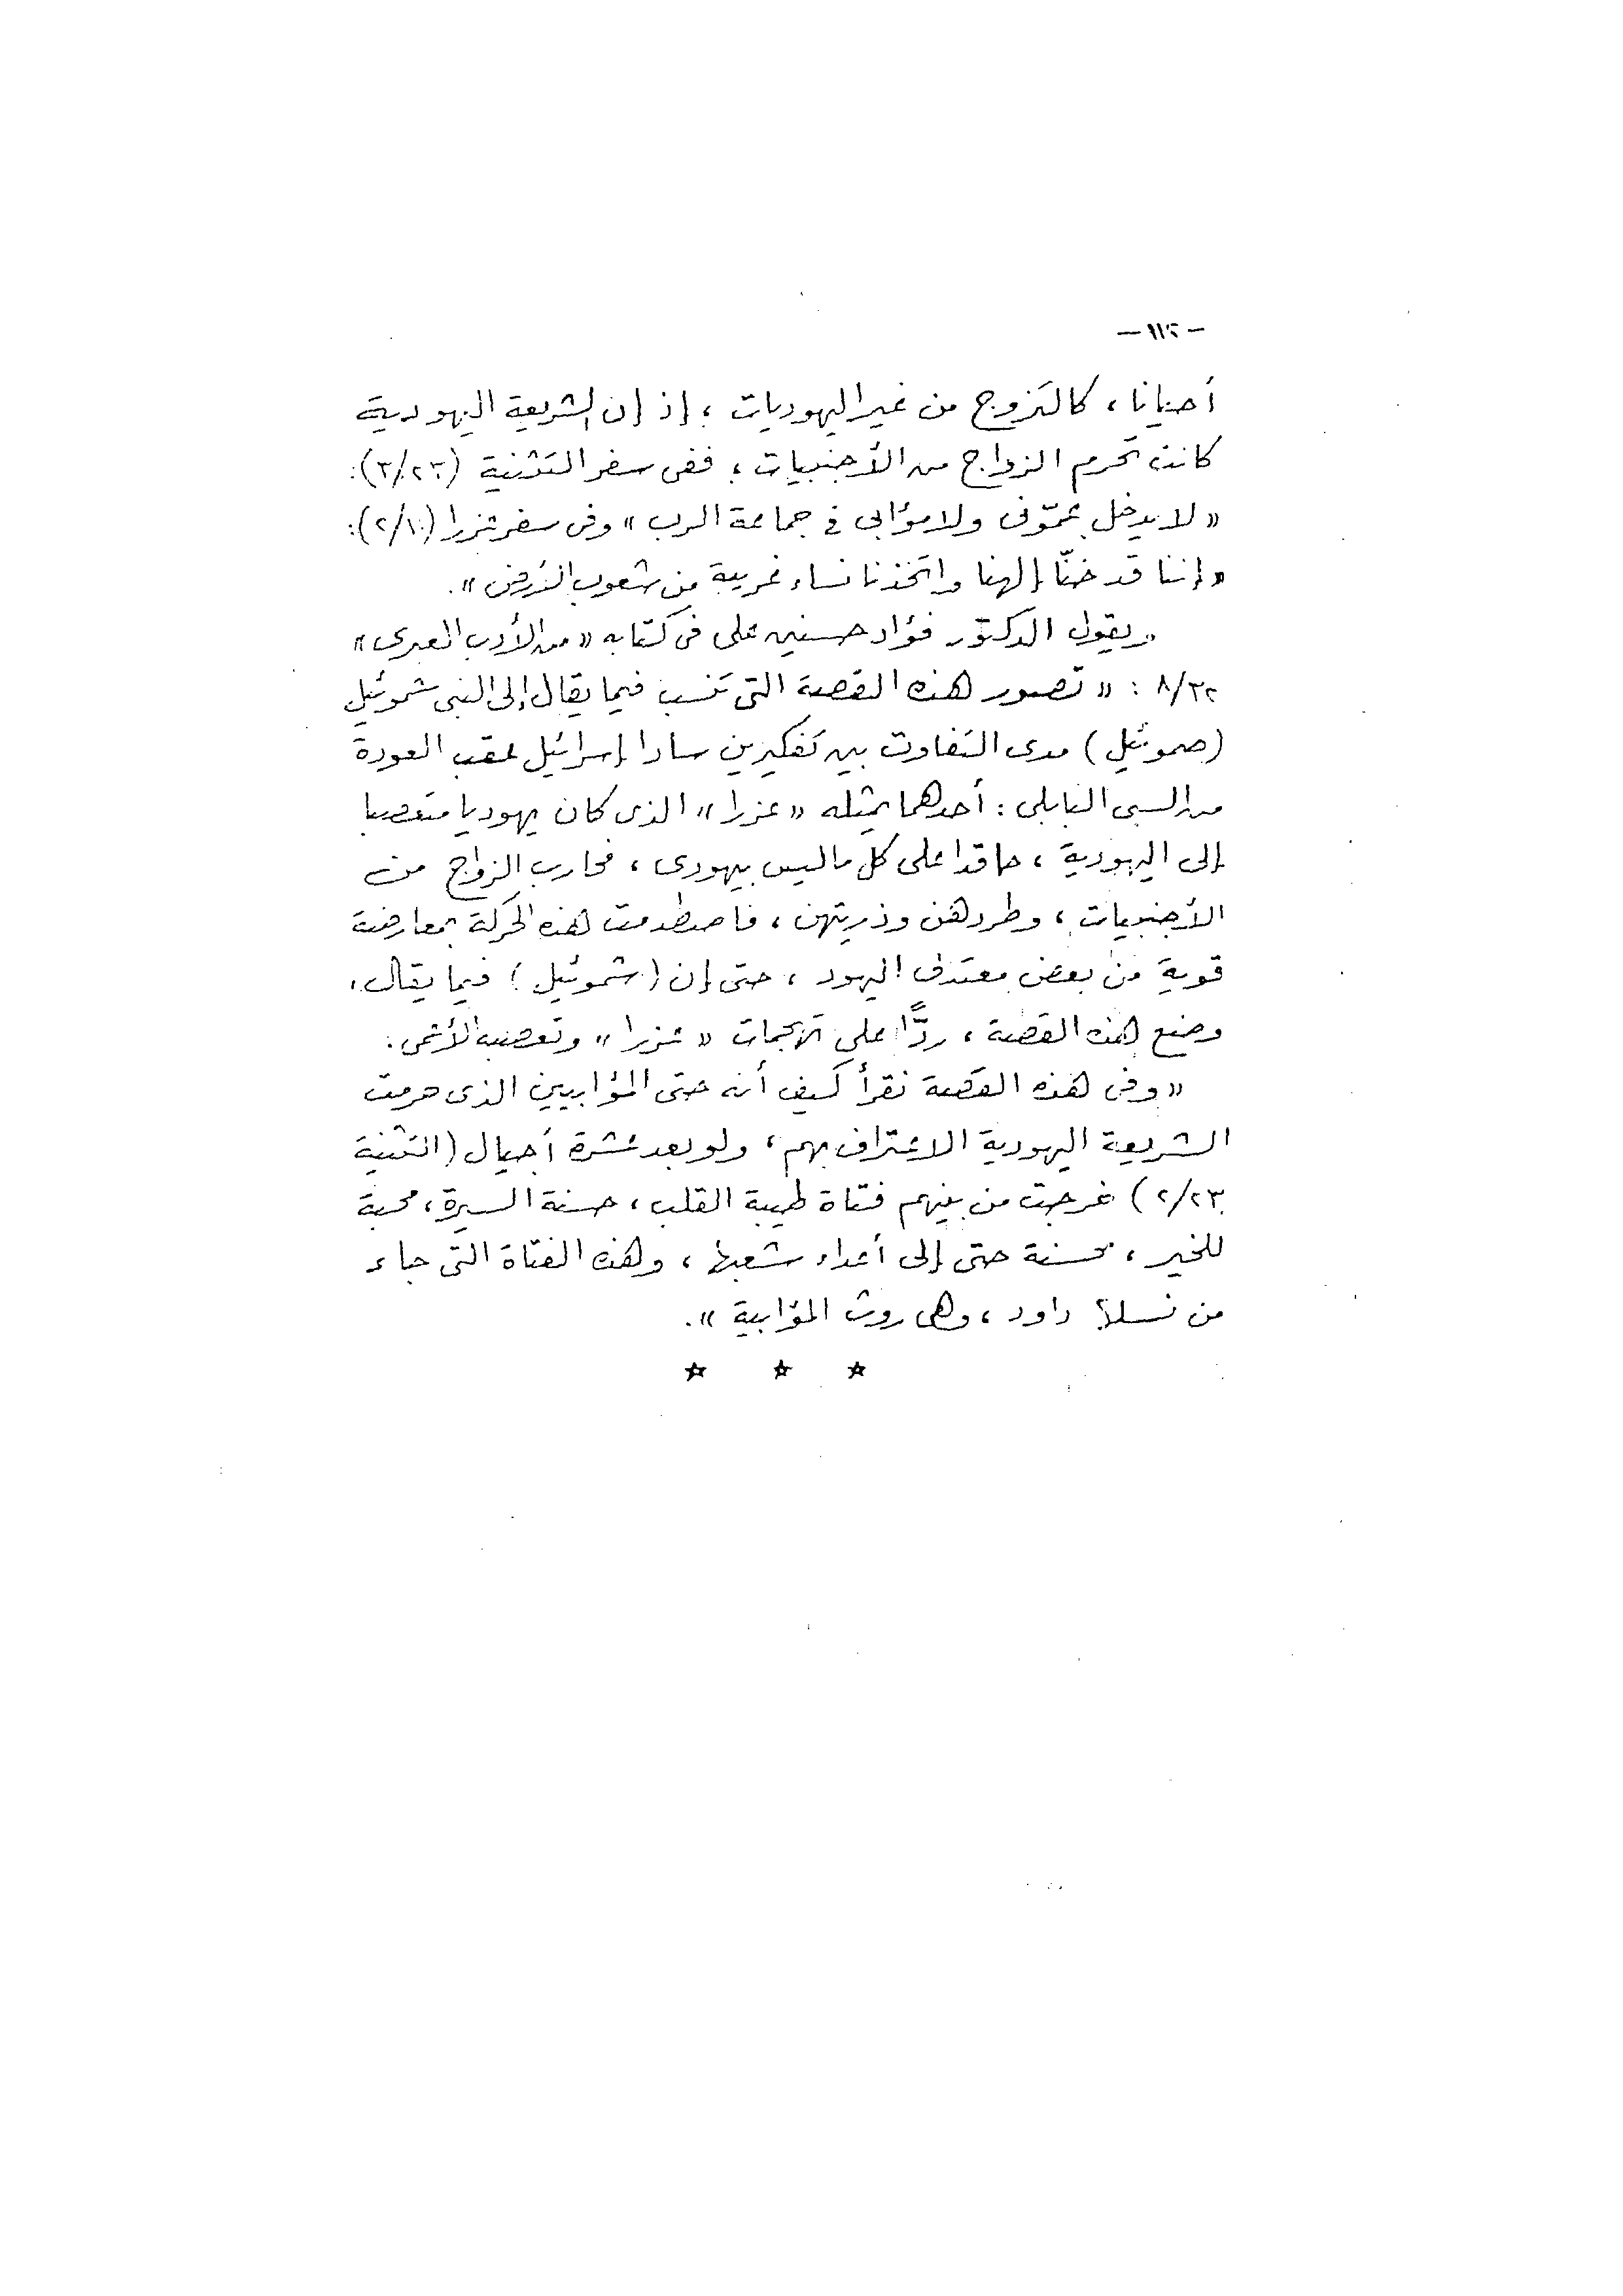 - ١١٢ -
أحيانا ، كالتزوج من غير اليهوديات ؛ إذ إن الشريعة اليهودية
كانت تحرم الزواج من الأجنبيات ؛ ففى سفر التثنية (٣/٢٣):
« لا يدخل عمّونى ولا مؤابى فى جماعة الرب » وفى سفر عزرا (٢/١٠):
« إننا قد خنّا إلهنا واتخذنا نساء غريبة من شعوب الأرض ».
ويقول الدكتور فؤاد حسنين على فى كتابه « من الأدب العبرى »
٨/٣٢ : « تصور هذه القصة التى تنسب فيما يقال إلى النبى شموئيل
(صموئيل) مدى التفاوت بين تفكيرين سادا إسرائيل عقب العودة
من السبى البابلى : أحدهما يمثله « عزرا » الذى كان يهوديا متعصبا
إلى اليهودية ، حاقدا على كل ما ليس بيهودى ، فحارب الزواج من
الأجنبيات ، وطردهن وذريتهن ، فاصطدمت هذه الحركة بمعارضة
قوية من بعض معتدلى اليهود ، حتى إن (شموئيل) فيما يقال ،
وضع هذه القصة ، ردًّا على تهجمات « عزرا » وتعصبه الأعمى .
« وفى هذه القصة نقرأ كيف أنه حتى المؤابيين الذى حرمت
الشريعة اليهودية الاعتراف بهم ، ولو بعد عشرة أجيال (التثنية
٢/٢٣) خرجت من بينهم فتاة طيبة القلب ، حسنة السيرة ، محبة
للخير ، محسنة حتى إلى أعداء شعبها ، وهذه الفتاة التى جاء
من نسلها داود ، وهى روث المؤابية ».
☆ ☆ ☆